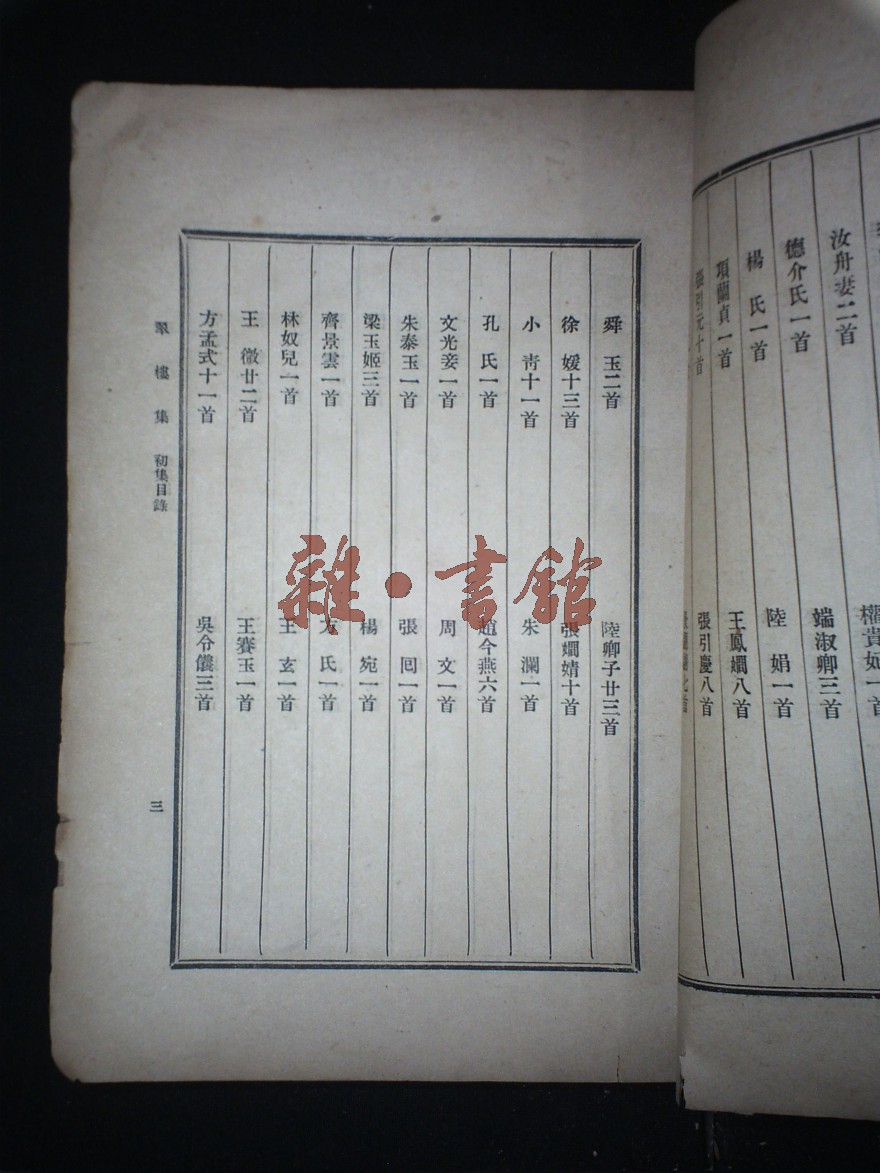 權貴妃一首
汝舟妻二首
端淑卿三首
德介氏一首
陸 娟一首
楊 氏一首
王鳳嫻八首
項蘭貞一首
張引慶八首
張引元十首
舜 玉二首
陸卿子廿三首
徐 媛十三首
張嫺婧十首
小 青十一首
朱 瀾一首
孔 氏一首
趙今燕六首
文光妾一首
周 文一首
朱泰玉一首
張 回一首
梁玉姬三首
楊 宛一首
齊景雲一首
方 氏一首
林奴兒一首
王 玄一首
王 微廿二首
王賽玉一首
方孟式十一首
吳令儀三首
翠樓集 初集目錄
三
雜·書館